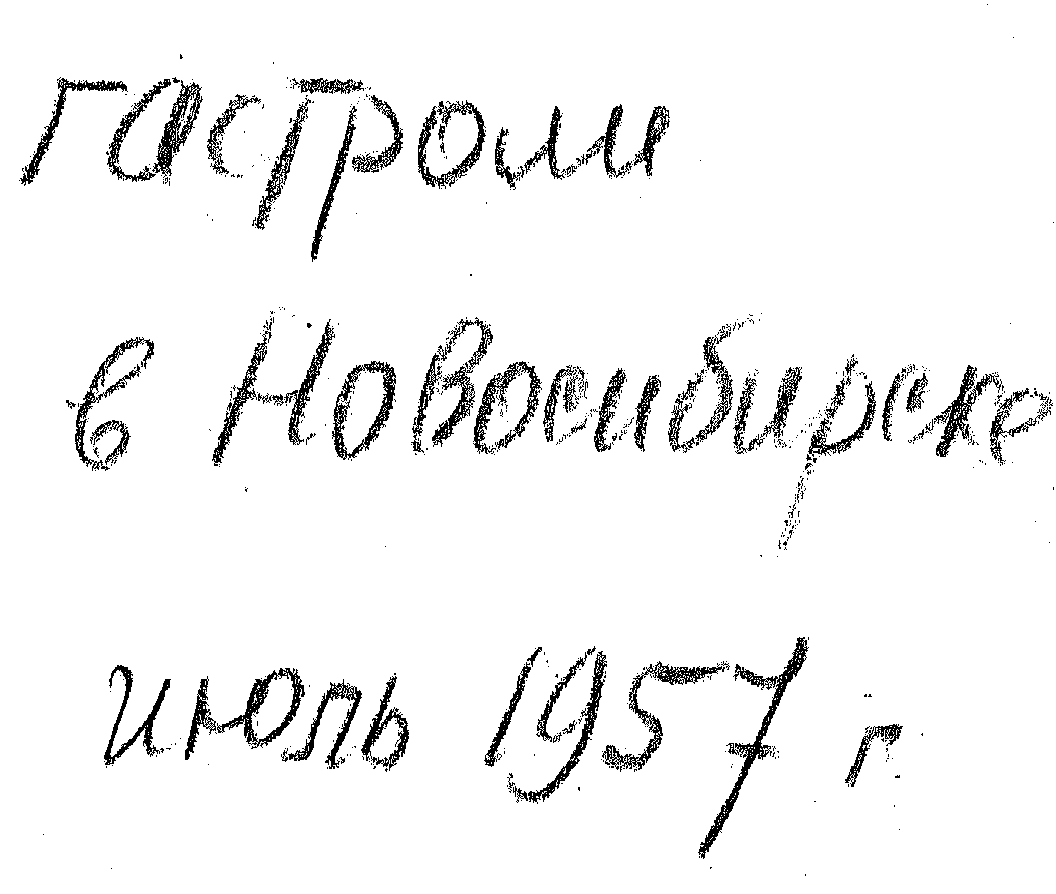 гастроли
в Новосибирске
июль 1957 г.